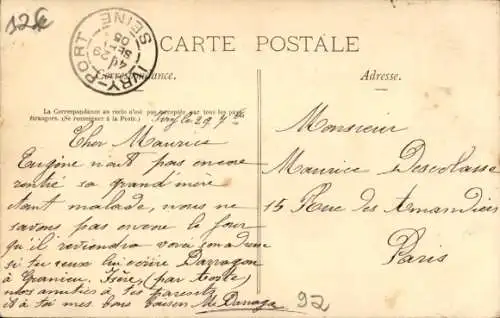 12€
IVRY-PORT
SEINE
29
SEPT
05
CARTE POSTALE
Correspondance.
Adresse.
La Correspondance au recto n'est pas acceptée par tous les pays
étrangers. (Se renseigner à la Poste.)
Ivry le 29 7bre
Cher Maurice
Eugène n'ait pas encore
rentré sa grand'mère
étant malade, nous ne
savons pas encore le jour
qu'il reviendra voici son adresse
si tu veux lui écrire Darragon
à Granieu. Isère (par
nos amitiés à tes parents
et à toi mes bons baisers Me Darragon
Monsieur
Maurice Descolasse
15 Rue des Amandiers
Paris
92